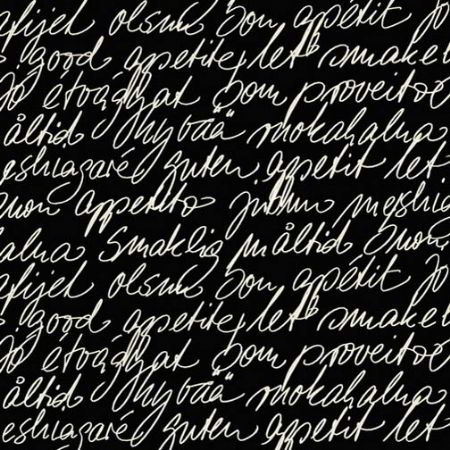 afijet olsun Bon appétit Jó
good appetite let smakel
Jó étvágyat Bom proveitoe
åltid Hyvää mokahalua
meshiagaré guten appetit let
Buon appetito jídlu meshiag
halua Smaklig måltid Buon
afijet olsun Bon appétit Jó
good appetite let smakel
Jó étvágyat Bom proveitoe
åltid Hyvää mokahalua
meshiagaré guten appetit let